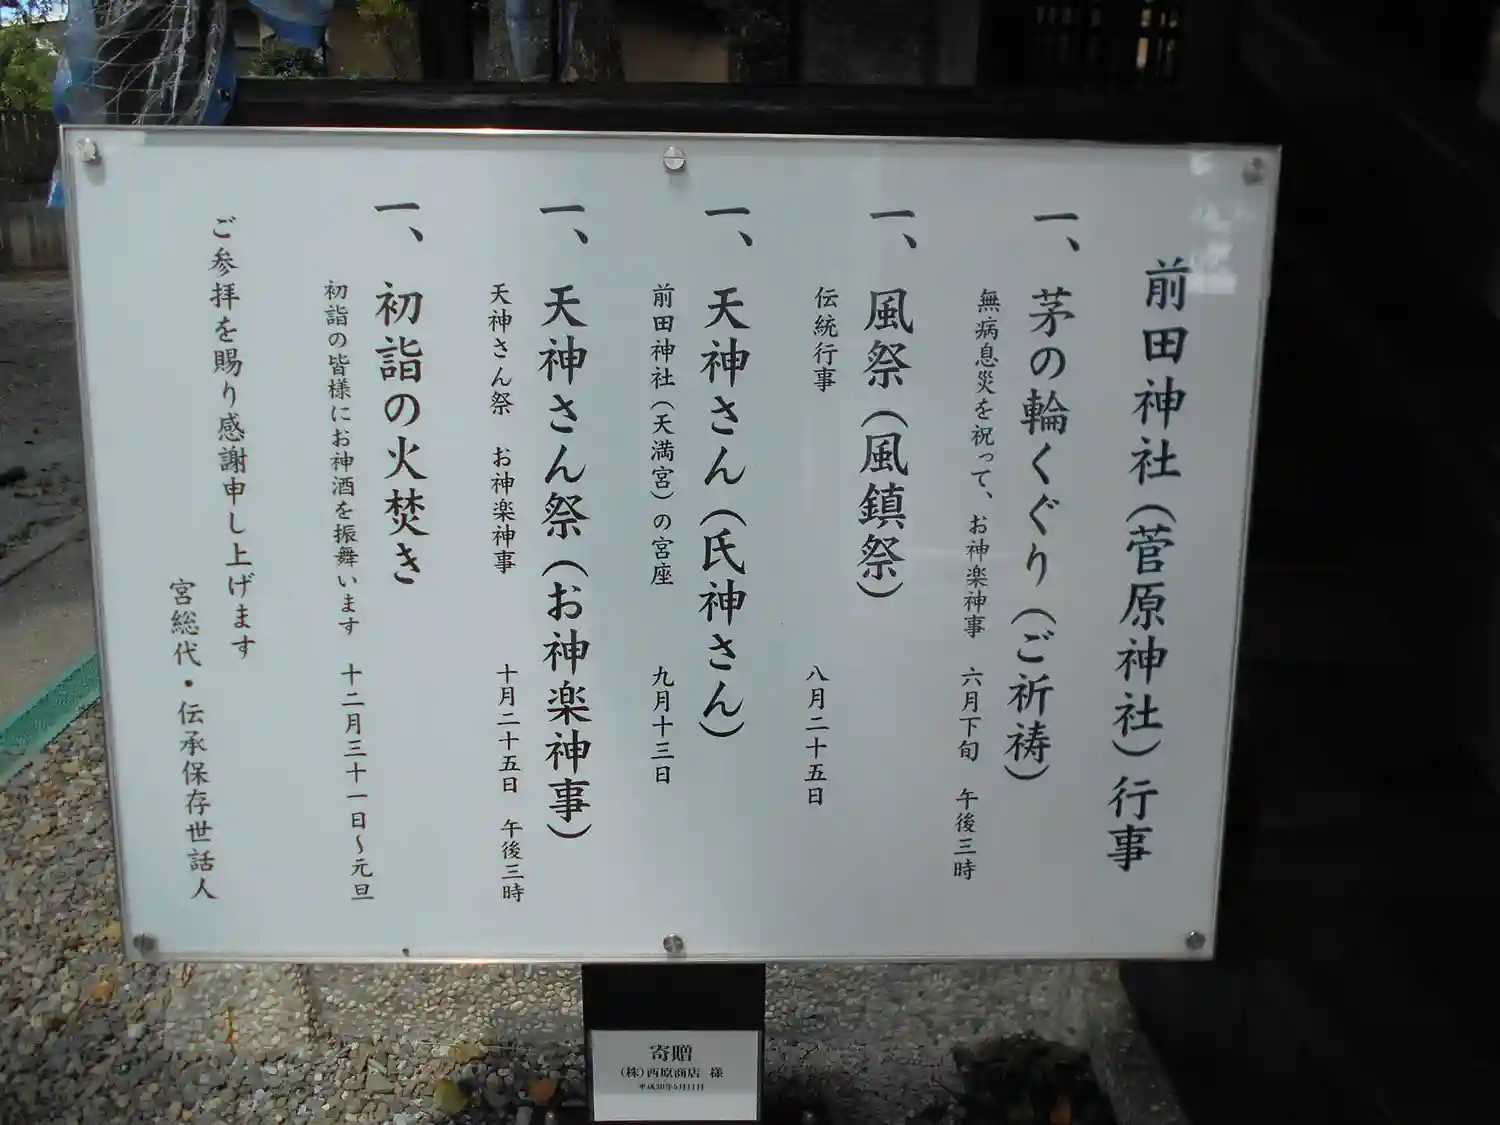 前田神社(菅原神社)行事
一、茅の輪くぐり(ご祈祷)
無病息災を祝って、お神楽神事 六月下旬 午後三時
一、風祭(風鎮祭)
伝統行事 八月二十五日
一、天神さん(氏神さん)
前田神社(天満宮)の宮座 九月十三日
一、天神さん祭(お神楽神事)
天神さん祭 お神楽神事 十月二十五日 午後三時
一、初詣の火焚き
初詣の皆様にお神酒を振舞います 十二月三十一日~元旦
ご参拝を賜り感謝申し上げます
宮総代・伝承保存世話人
寄贈
(株)西原商店 様
平成30年5月11日